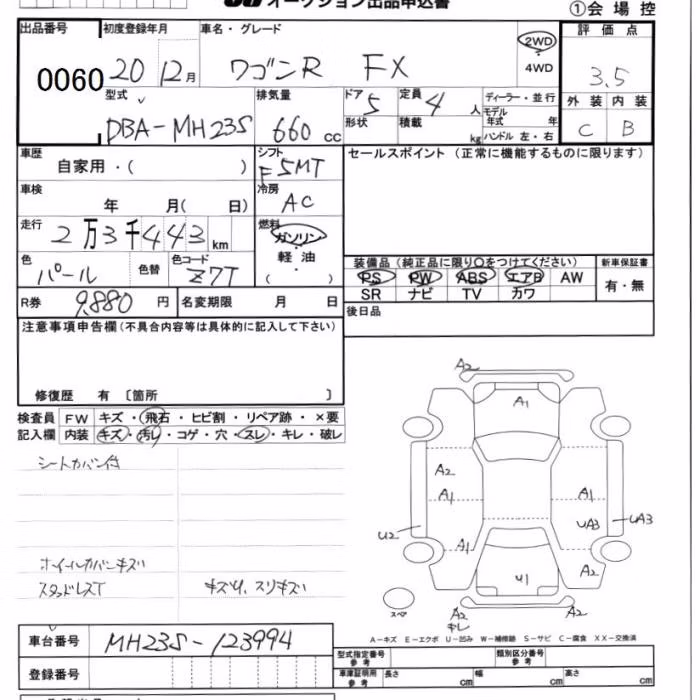 オークション出品申込書
①会場控
出品番号 初度登録年月 車名・グレード 評価点
0060 20 12月 ワゴンR FX 2WD 4WD 3.5
型式 排気量 ドア 定員 ディーラー・並行 外装 内装
DBA-MH23S 660 cc 5 4 人 モデル年式 年 C B
形状 積載 kg ハンドル 左・右
車歴 シフト セールスポイント (正常に機能するものに限ります)
自家用・( ) F5MT
車検 冷房
年 月( 日) AC
走行 燃料
2万3千443 km ガソリン・軽油・( )
色 色替 色コード 装備品 (純正品に限り○をつけてください) 新車保証書
パール Z7T PS PW ABS エアB AW 有・無
SR ナビ TV カワ
R券 9,880 円 名変期限 月 日 後日品
注意事項申告欄(不具合内容等は具体的に記入して下さい)
修復歴 有 〔箇所 〕
検査員 FW キズ・飛石・ヒビ割・リペア跡・×要
記入欄 内装 キズ・汚レ・コゲ・穴・スレ・キレ・破レ
シートカバー付
ホイールカバーキズ
スタッドレスT キズU、スリキズ
A2
A1
A2
A1 A1
UA3 UA3
U2
A1
A2
U1
スペア
A2 キレ A2
A-キズ E-エクボ U-凹み W-補修跡 S-サビ C-腐食 XX-交換済
車台番号 MH23S-123994
型式指定番号 参考 類別区分番号 参考
登録番号
車庫証明用 参考 長さ cm 幅 cm 高さ cm